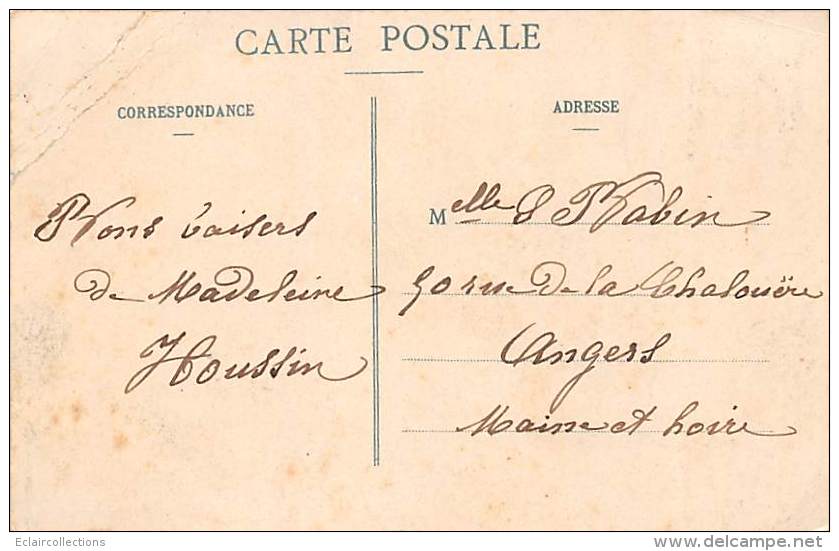 CARTE POSTALE
CORRESPONDANCE
ADRESSE
Bons baisers
de Madeleine
Houssin
Melle Robin
50 rue de la Chalouère
Angers
Maine et Loire
Eclaircollections
www.delcampe.net